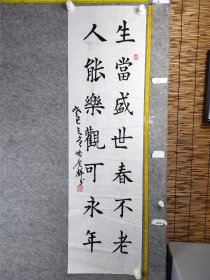 生當盛世春不老
人能樂觀可永年